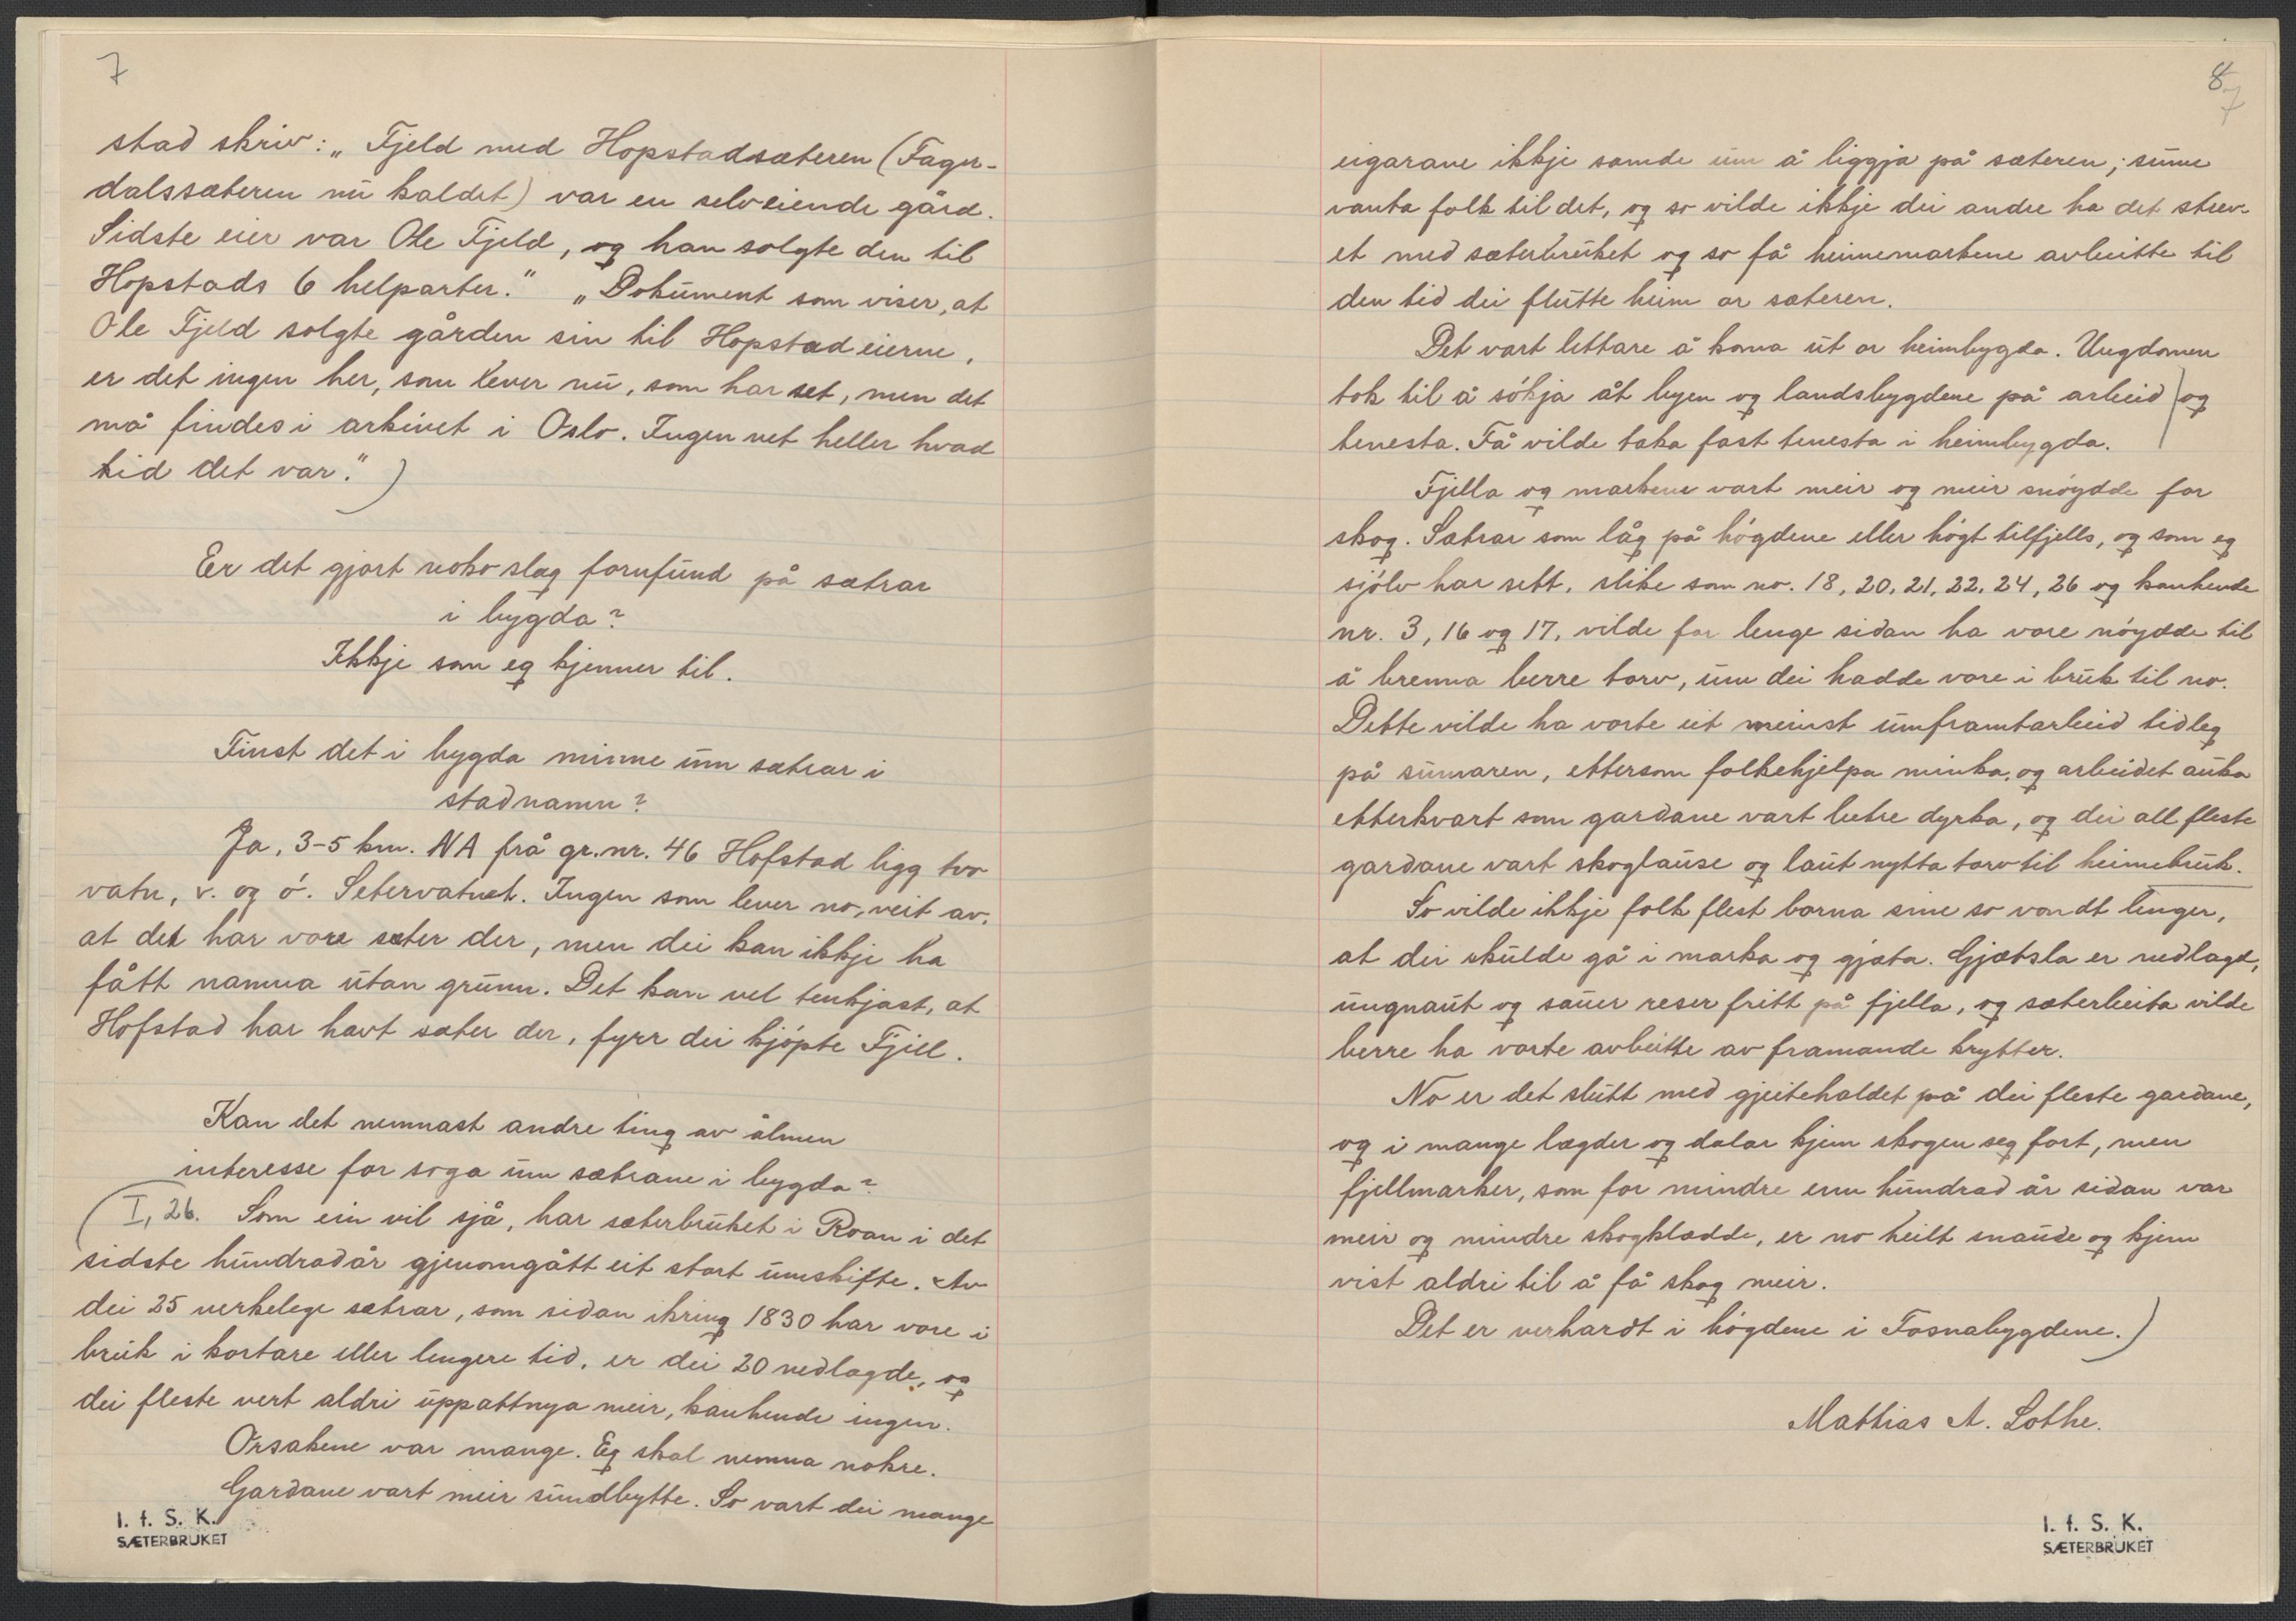 7
stad skriv: „Fjeld med Hopstadsæteren (Fager-
dalssæteren nu kaldet) var en selveiende gård.
Sidste eier var Ole Fjeld, og han solgte den til
Hopstads 6 helparter." „Dokument som viser, at
Ole Fjeld solgte gården sin til Hopstadeierne,
er det ingen her, som lever nu, som har set, men det
må findes i arkivet i Oslo. Ingen vet heller hvad
tid det var.")
Er det gjort noko slag fornfund på sætrar
i bygda?
Ikkje som eg kjenner til.
Finst det i bygda minne um sætrar i
stadnamn?
Ja, 3-5 km. NA frå gr.nr. 46 Hofstad ligg two
vatn, v. og ó. Setervatnet. Ingen som lever no, veit av,
at det har vore sæter der, men dei kan ikkje ha
fått namna utan grunn. Det kan vel tenkjast, at
Hofstad har havt sæter der, fyrr dei kjópte Fjell.
Kan det nemnast andre ting av ålmen
interesse for soga um sætrane i bygda?
(I, 26. Som ein vil sjå, har sæterbruket i Roan i det
sidste hundradår gjenomgått eit stort umskifte. Av
dei 25 verkelege sætrar, som sidan ikring 1830 har vore i
bruk i kortare eller lengere tid, er dei 20 nedlagde, og
dei fleste vert aldri uppattnya meir, kanhende ingen.
Orsakene var mange. Eg skal nemna nokre.
Gardane vart meir sundbytte. So vart dei mange
I. f. S. K.
SÆTERBRUKET
8
7
eigarane ikkje samde um å liggja på sæteren; sume
vanta folk til det, og so vilde ikkje dei andre ha det strev-
et med sæterbruket og so få heimemarkene avbeitte til
den tid dei flutte heim or sæteren.
Det vart lettare å koma ut or heimbygda. Ungdomen
tok til å sókja åt byen og landsbygdene på arbeid og
tenesta. Få vilde taka fast tenesta i heimbygda.
Fjella og markene vart meir og meir snóydde for
skog. Sætrar som låg på hógdene eller hógt tilfjells, og som eg
sjólv har sett, slike som no. 18, 20, 21, 22, 24, 26 og kanhende
nr. 3, 16 og 17, vilde for lenge sidan ha vore nóydde til
å brenna berre torv, um dei hadde vore i bruk til no.
Dette vilde ha vorte eit meinst umframtarbeid tidleg
på sumaren, ettersom folkehjelpa minka, og arbeidet auka
etterkvart som gardane vart betre dyrka, og dei all fleste
gardane vart skoglause og laut nytta torv til heimebruk.
So vilde ikkje folk flest borna sine so vondt lenger,
at dei skulde gå i marka og gjæta. Gjætsla er nedlagt,
ungnaut og sauer reser fritt på fjella, og sæterbeita vilde
berre ha vorte avbeitte av framande krytter.
No er det slutt med gjeiteholdet på dei fleste gardane,
og i mange lægder og dalar kjem skogen seg fort, men
fjellmarker, som for mindre enn hundrad år sidan var
meir og mindre skogklædde, er no heilt snaude og kjem
vist aldri til å få skog meir.
Det er verhardt i hógdene i Fosnabygdene.)
Mathias A. Lothe.
I. f. S. K.
SÆTERBRUKET